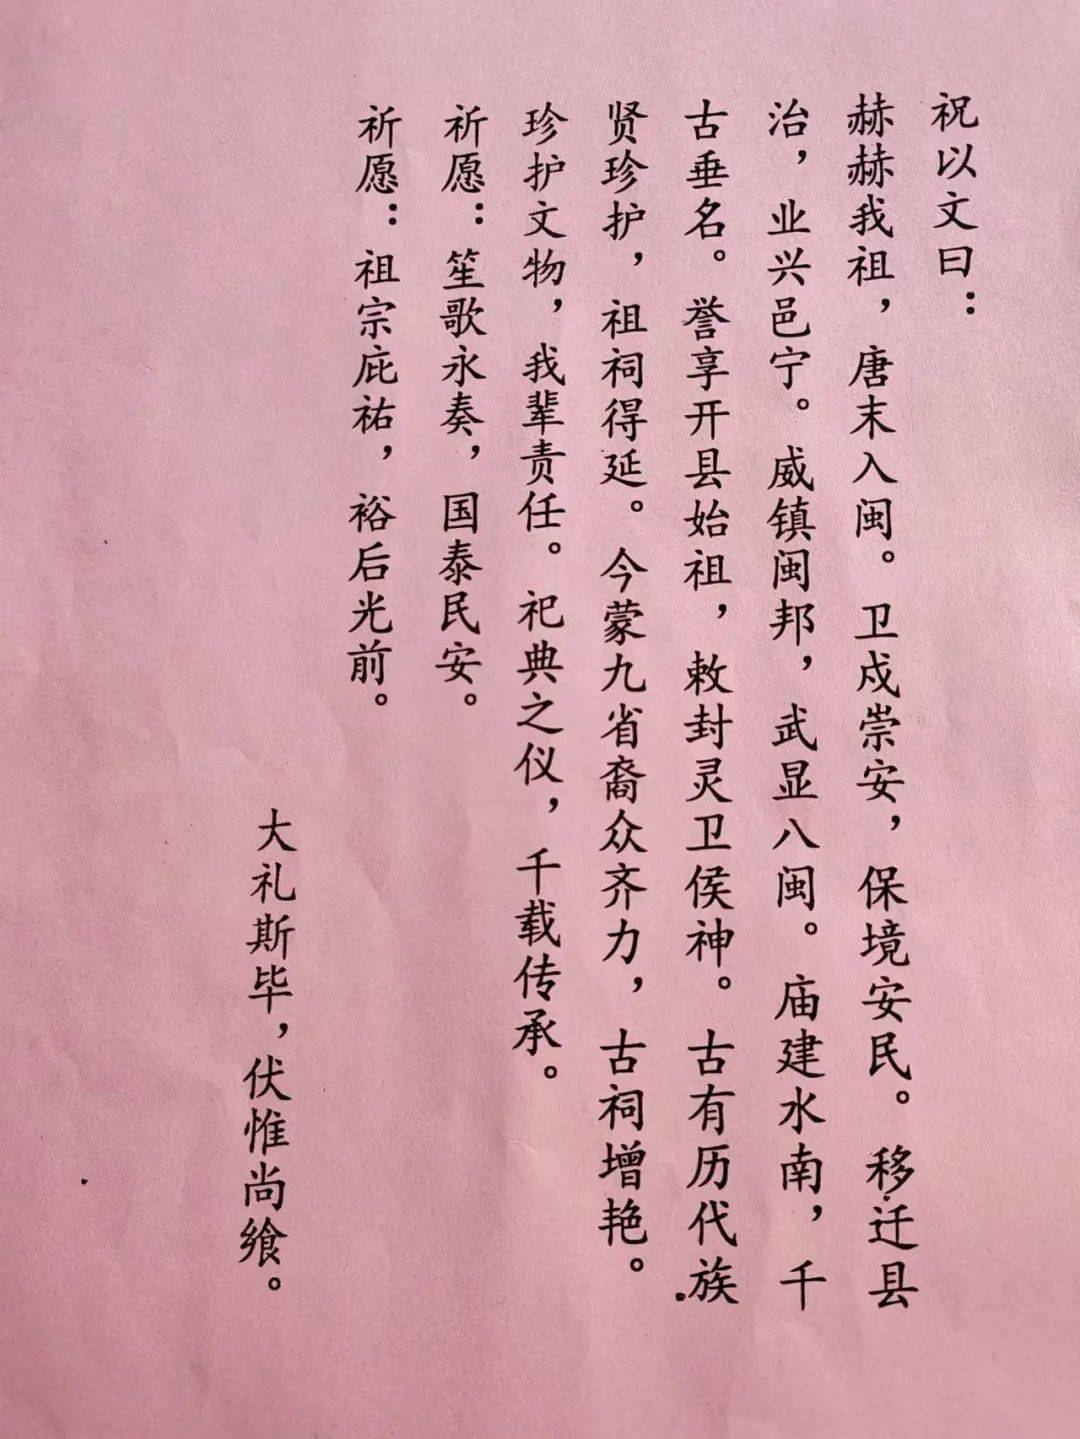 祝以文曰：
赫赫我祖，唐末入闽。卫戍崇安，保境安民。移迁县
治，业兴邑宁。威镇闽邦，武显八闽。庙建水南，千
古垂名。誉享开县始祖，敕封灵卫侯神。古有历代族
贤珍护，祖祠得延。今蒙九省裔众齐力，古祠增艳。
珍护文物，我辈责任。祀典之仪，千载传承。
祈愿：笙歌永奏，国泰民安。
祈愿：祖宗庇祐，裕后光前。
大礼斯毕，伏惟尚飨。